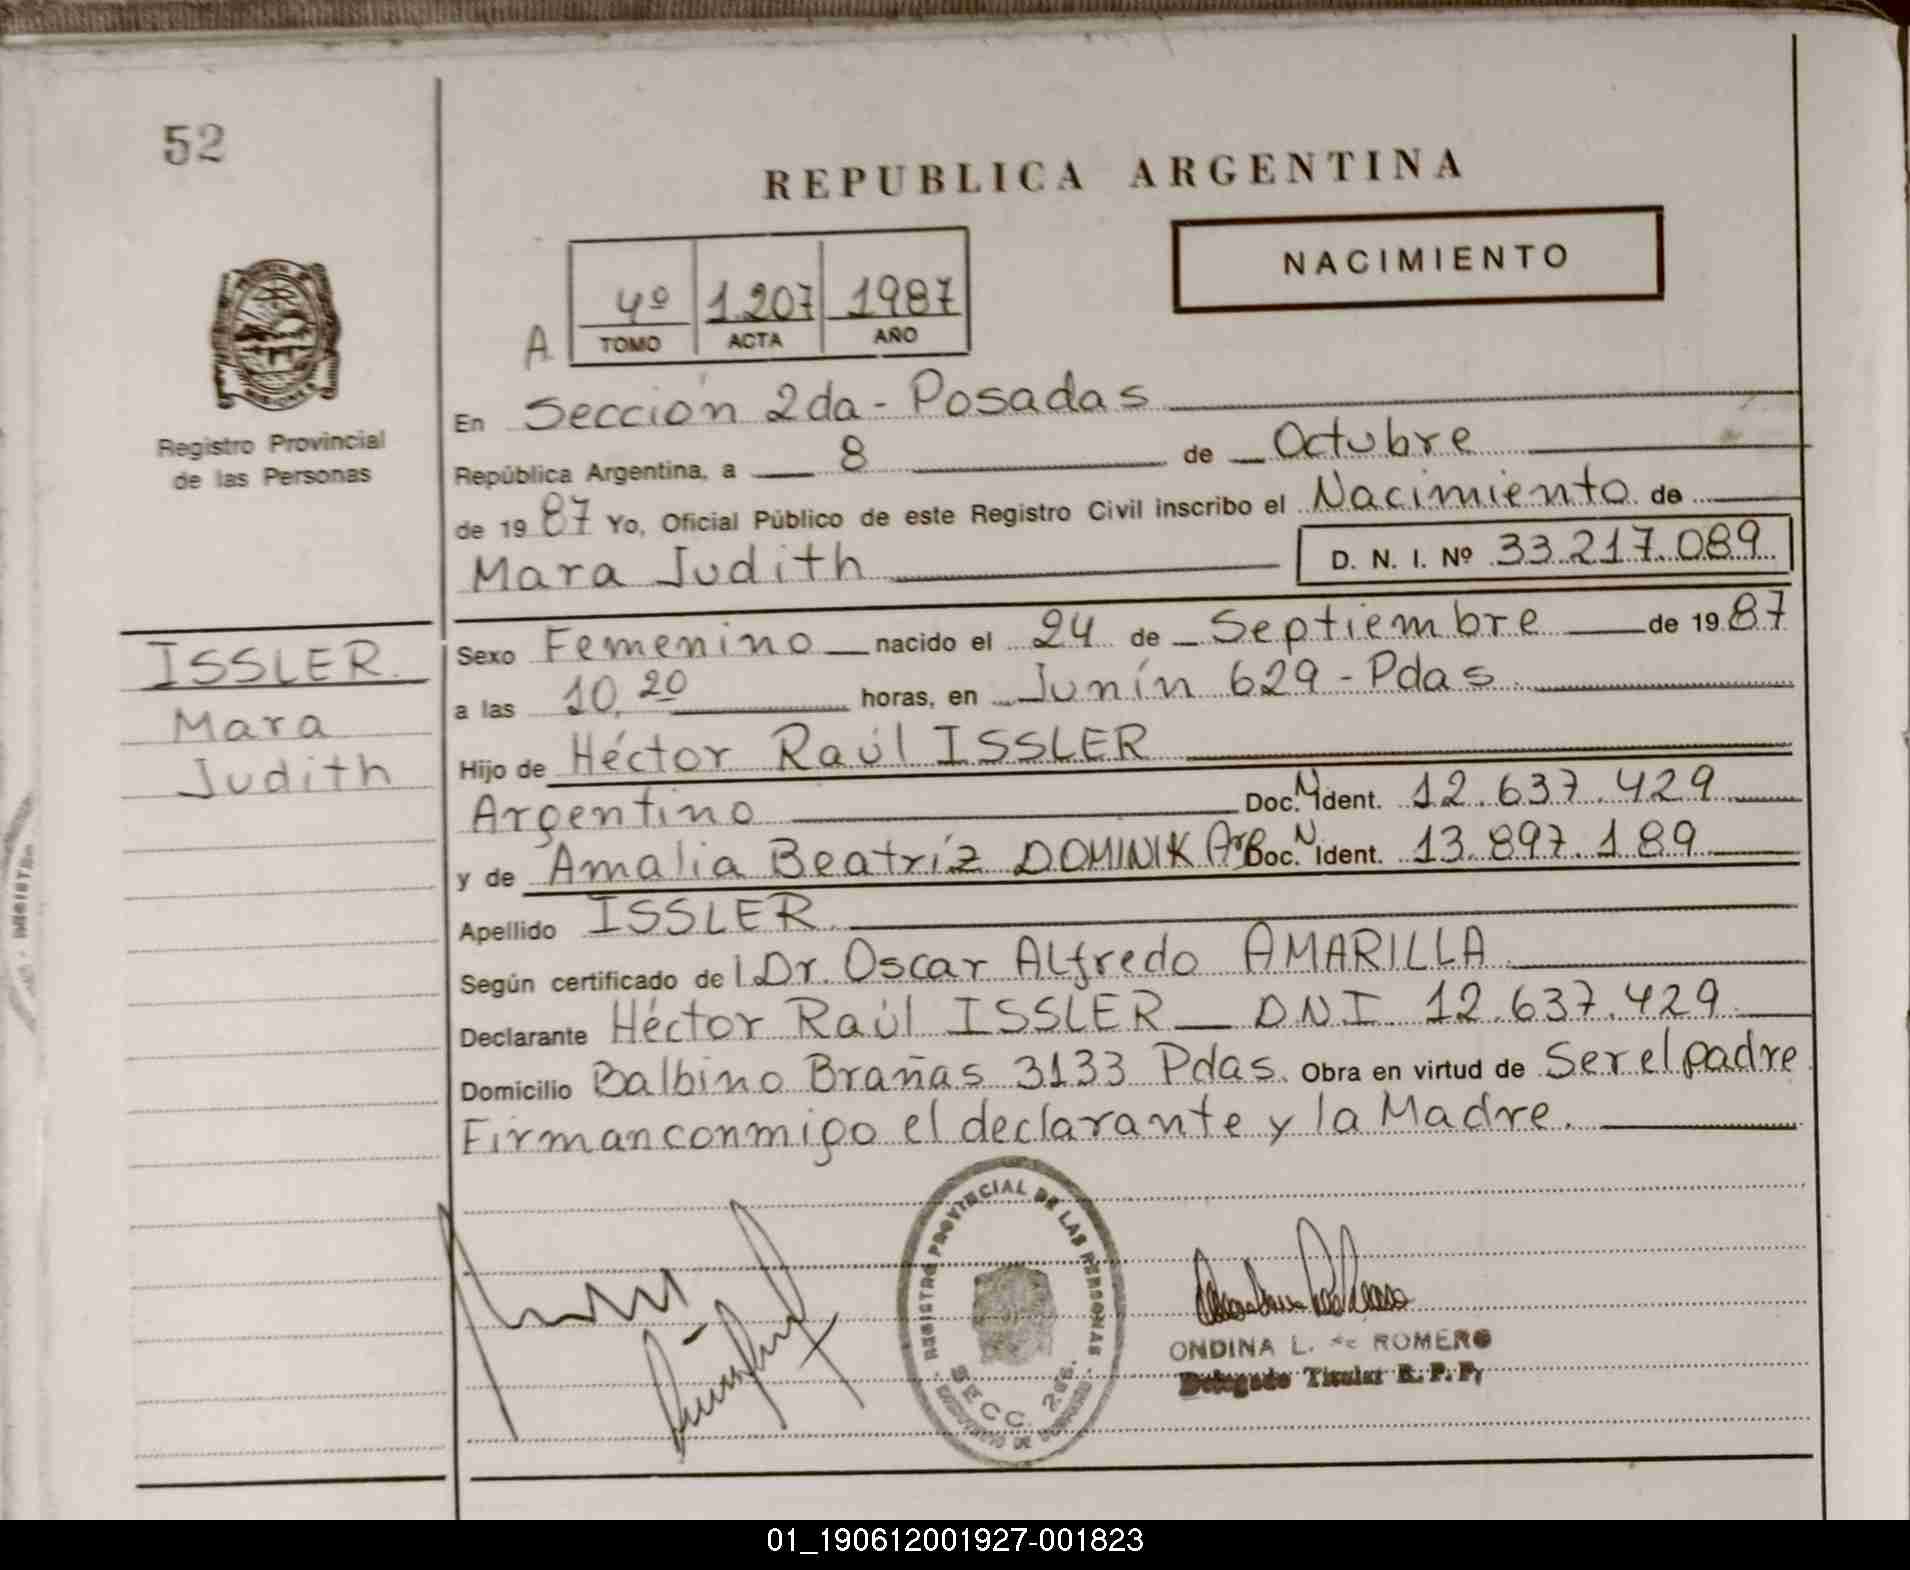 52
REPUBLICA ARGENTINA
NACIMIENTO
A
4º 1.207 1987
TOMO ACTA AÑO
Registro Provincial
de las Personas
En Sección 2da - Posadas
República Argentina, a 8 de Octubre
de 1987 Yo, Oficial Público de este Registro Civil inscribo el Nacimiento de
Mara Judith D. N. I. Nº 33.217.089
ISSLER
Mara
Judith
Sexo Femenino nacido el 24 de Septiembre de 1987
a las 10,20 horas, en Junín 629 - Pdas
Hijo de Héctor Raúl ISSLER
Argentino Doc. N Ident. 12.637.429
y de Amalia Beatríz DOMINIK Ar Doc. N Ident. 13.897.189
Apellido ISSLER
Según certificado de l Dr. Oscar Alfredo AMARILLA
Declarante Héctor Raúl ISSLER DNI 12.637.429
Domicilio Balbino Brañas 3133 Pdas. Obra en virtud de Ser el padre
Firman conmigo el declarante y la Madre.
REGISTRO PROVINCIAL DE LAS PERSONAS
SECC. 2da.
ONDINA L. de ROMERO
Delegado Titular R. P. P.
01_190612001927-001823